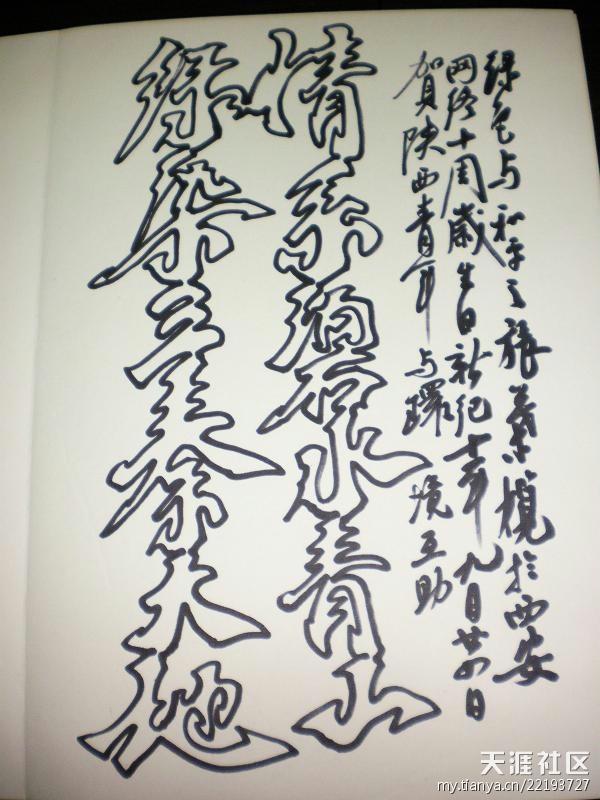 绿色与和平之旅 於西安
网络十周歲生日新纪十年九月廿四日
賀陕西青年与環境互助
情系 水青山
绿染三 天地
天涯社区
my.tianya.cn/22193727